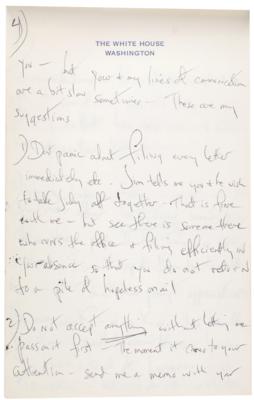 4)
THE WHITE HOUSE
WASHINGTON
you — but your & my lines of communication
are a bit slow sometimes — These are my
suggestions
1) Don't panic about filing every letter
immediately etc. Jim tells me you & he wish
to take July off together — That is fine
with me — but see there is someone there
who runs the office & filing efficiently in
your absence so that you do not return
to a pile of hopeless mail
2) Do not accept anything without letting me
pass on it first — The moment it comes to your
attention — send me a memo with your